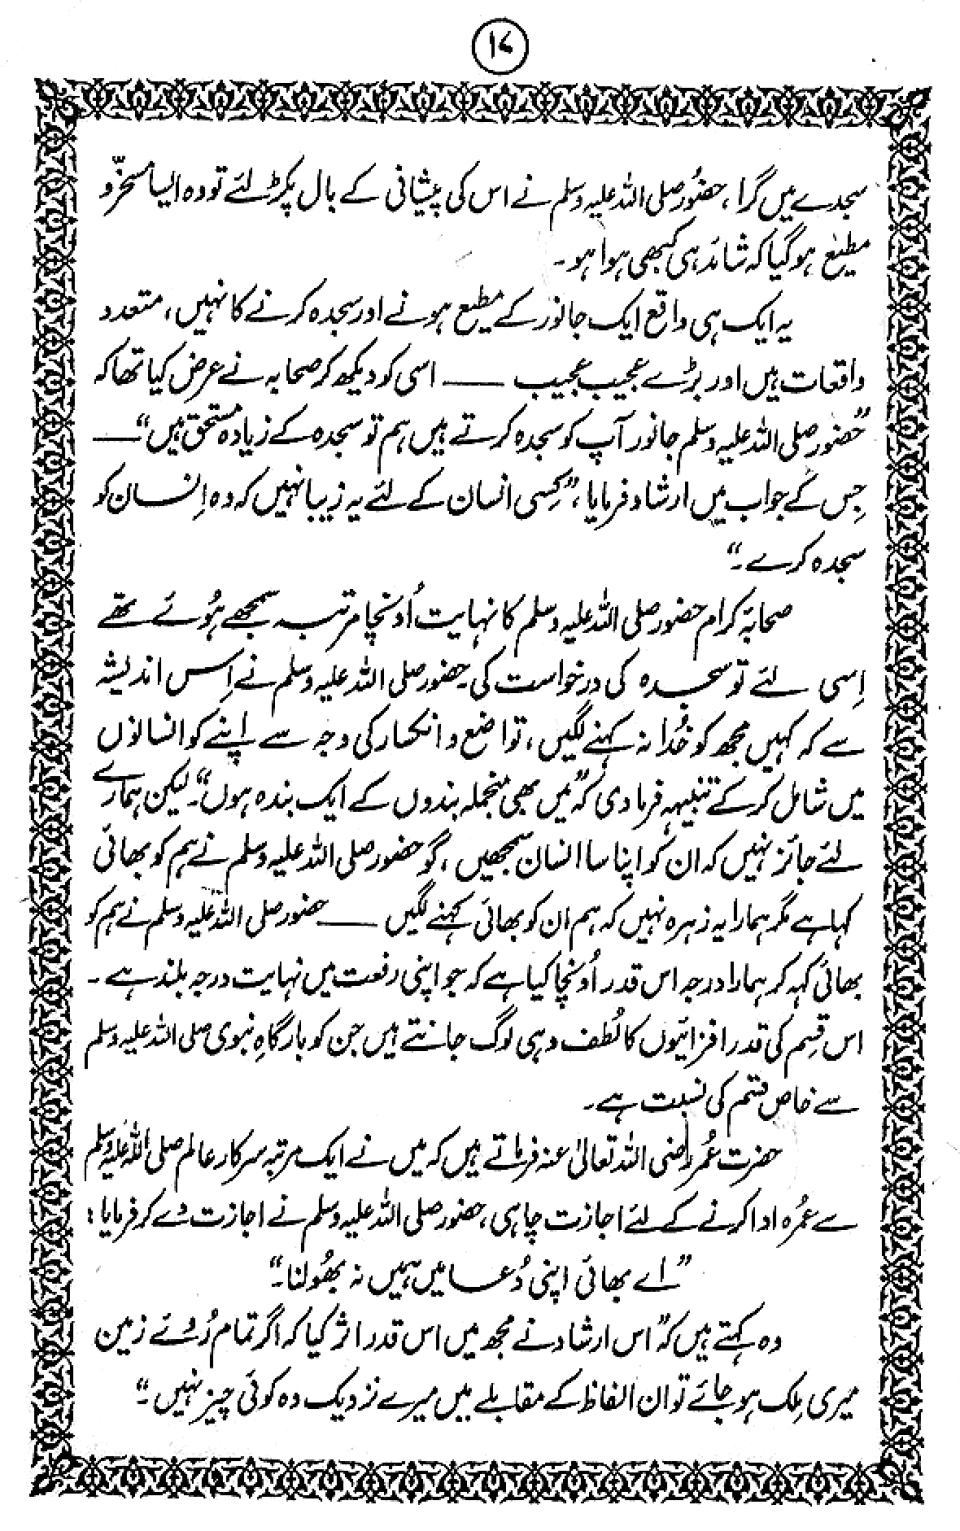 ۱۷
سجدے میں گرا، حضور صلی اللہ علیہ وسلم نے اس کی پیشانی کے بال پکڑ لئے تو وہ ایسا مسخّر و
مطیع ہو گیا کہ شائد ہی کبھی ہوا ہو۔
یہ ایک ہی واقع ایک جانور کے مطیع ہونے اور سجدہ کرنے کا نہیں، متعدد
واقعات ہیں اور بڑے عجیب عجیب —— اسی کو دیکھ کر صحابہ نے عرض کیا تھا کہ
”حضور صلی اللہ علیہ وسلم جانور آپ کو سجدہ کرتے ہیں ہم تو سجدہ کے زیادہ مستحق ہیں“ ——
جس کے جواب میں ارشاد فرمایا، ”کسی انسان کے لئے یہ زیبا نہیں کہ وہ اِنسان کو
سجدہ کرے۔“
صحابہ کرام حضور صلی اللہ علیہ وسلم کا نہایت اُونچا مرتبہ سمجھے ہُوئے تھے
اِسی لئے تو سجدہ کی درخواست کی۔ حضور صلی اللہ علیہ وسلم نے اِس اندیشہ
سے کہ کہیں مجھ کو خُدا نہ کہنے لگیں، تواضع و انکسار کی وجہ سے اپنے کو انسانوں
میں شامل کر کے تنبیہہ فرما دی کہ ”میں بھی منجملہ بندوں کے ایک بندہ ہوں“۔ لیکن ہمارے
لئے جائز نہیں کہ ان کو اپنا سا انسان سمجھیں، گو حضور صلی اللہ علیہ وسلم نے ہم کو بھائی
کہا ہے مگر ہمارا یہ زہرہ نہیں کہ ہم ان کو بھائی کہنے لگیں —— حضور صلی اللہ علیہ وسلم نے ہم کو
بھائی کہہ کر ہمارا درجہ اس قدر اُونچا کیا ہے کہ جو اپنی رفعت میں نہایت درجہ بلند ہے۔
اس قسم کی قدر افزائیوں کا لُطف وہی لوگ جانتے ہیں جن کو بارگاہِ نبوی صلی اللہ علیہ وسلم
سے خاص قسم کی نسبت ہے۔
حضرت عُمر رضی اللہ تعالیٰ عنہ فرماتے ہیں کہ میں نے ایک مرتبہ سرکار عالم صلی اللہ علیہ وسلم
سے عمرہ ادا کرنے کے لئے اجازت چاہی، حضور صلی اللہ علیہ وسلم نے اجازت دے کر فرمایا:
”اے بھائی اپنی دُعا میں ہمیں نہ بھُولنا۔“
وہ کہتے ہیں کہ ”اس ارشاد نے مجھ میں اس قدر اثر کیا کہ اگر تمام رُوئے زمین
میری مِلک ہو جائے تو ان الفاظ کے مقابلے میں میرے نزدیک وہ کوئی چیز نہیں۔“